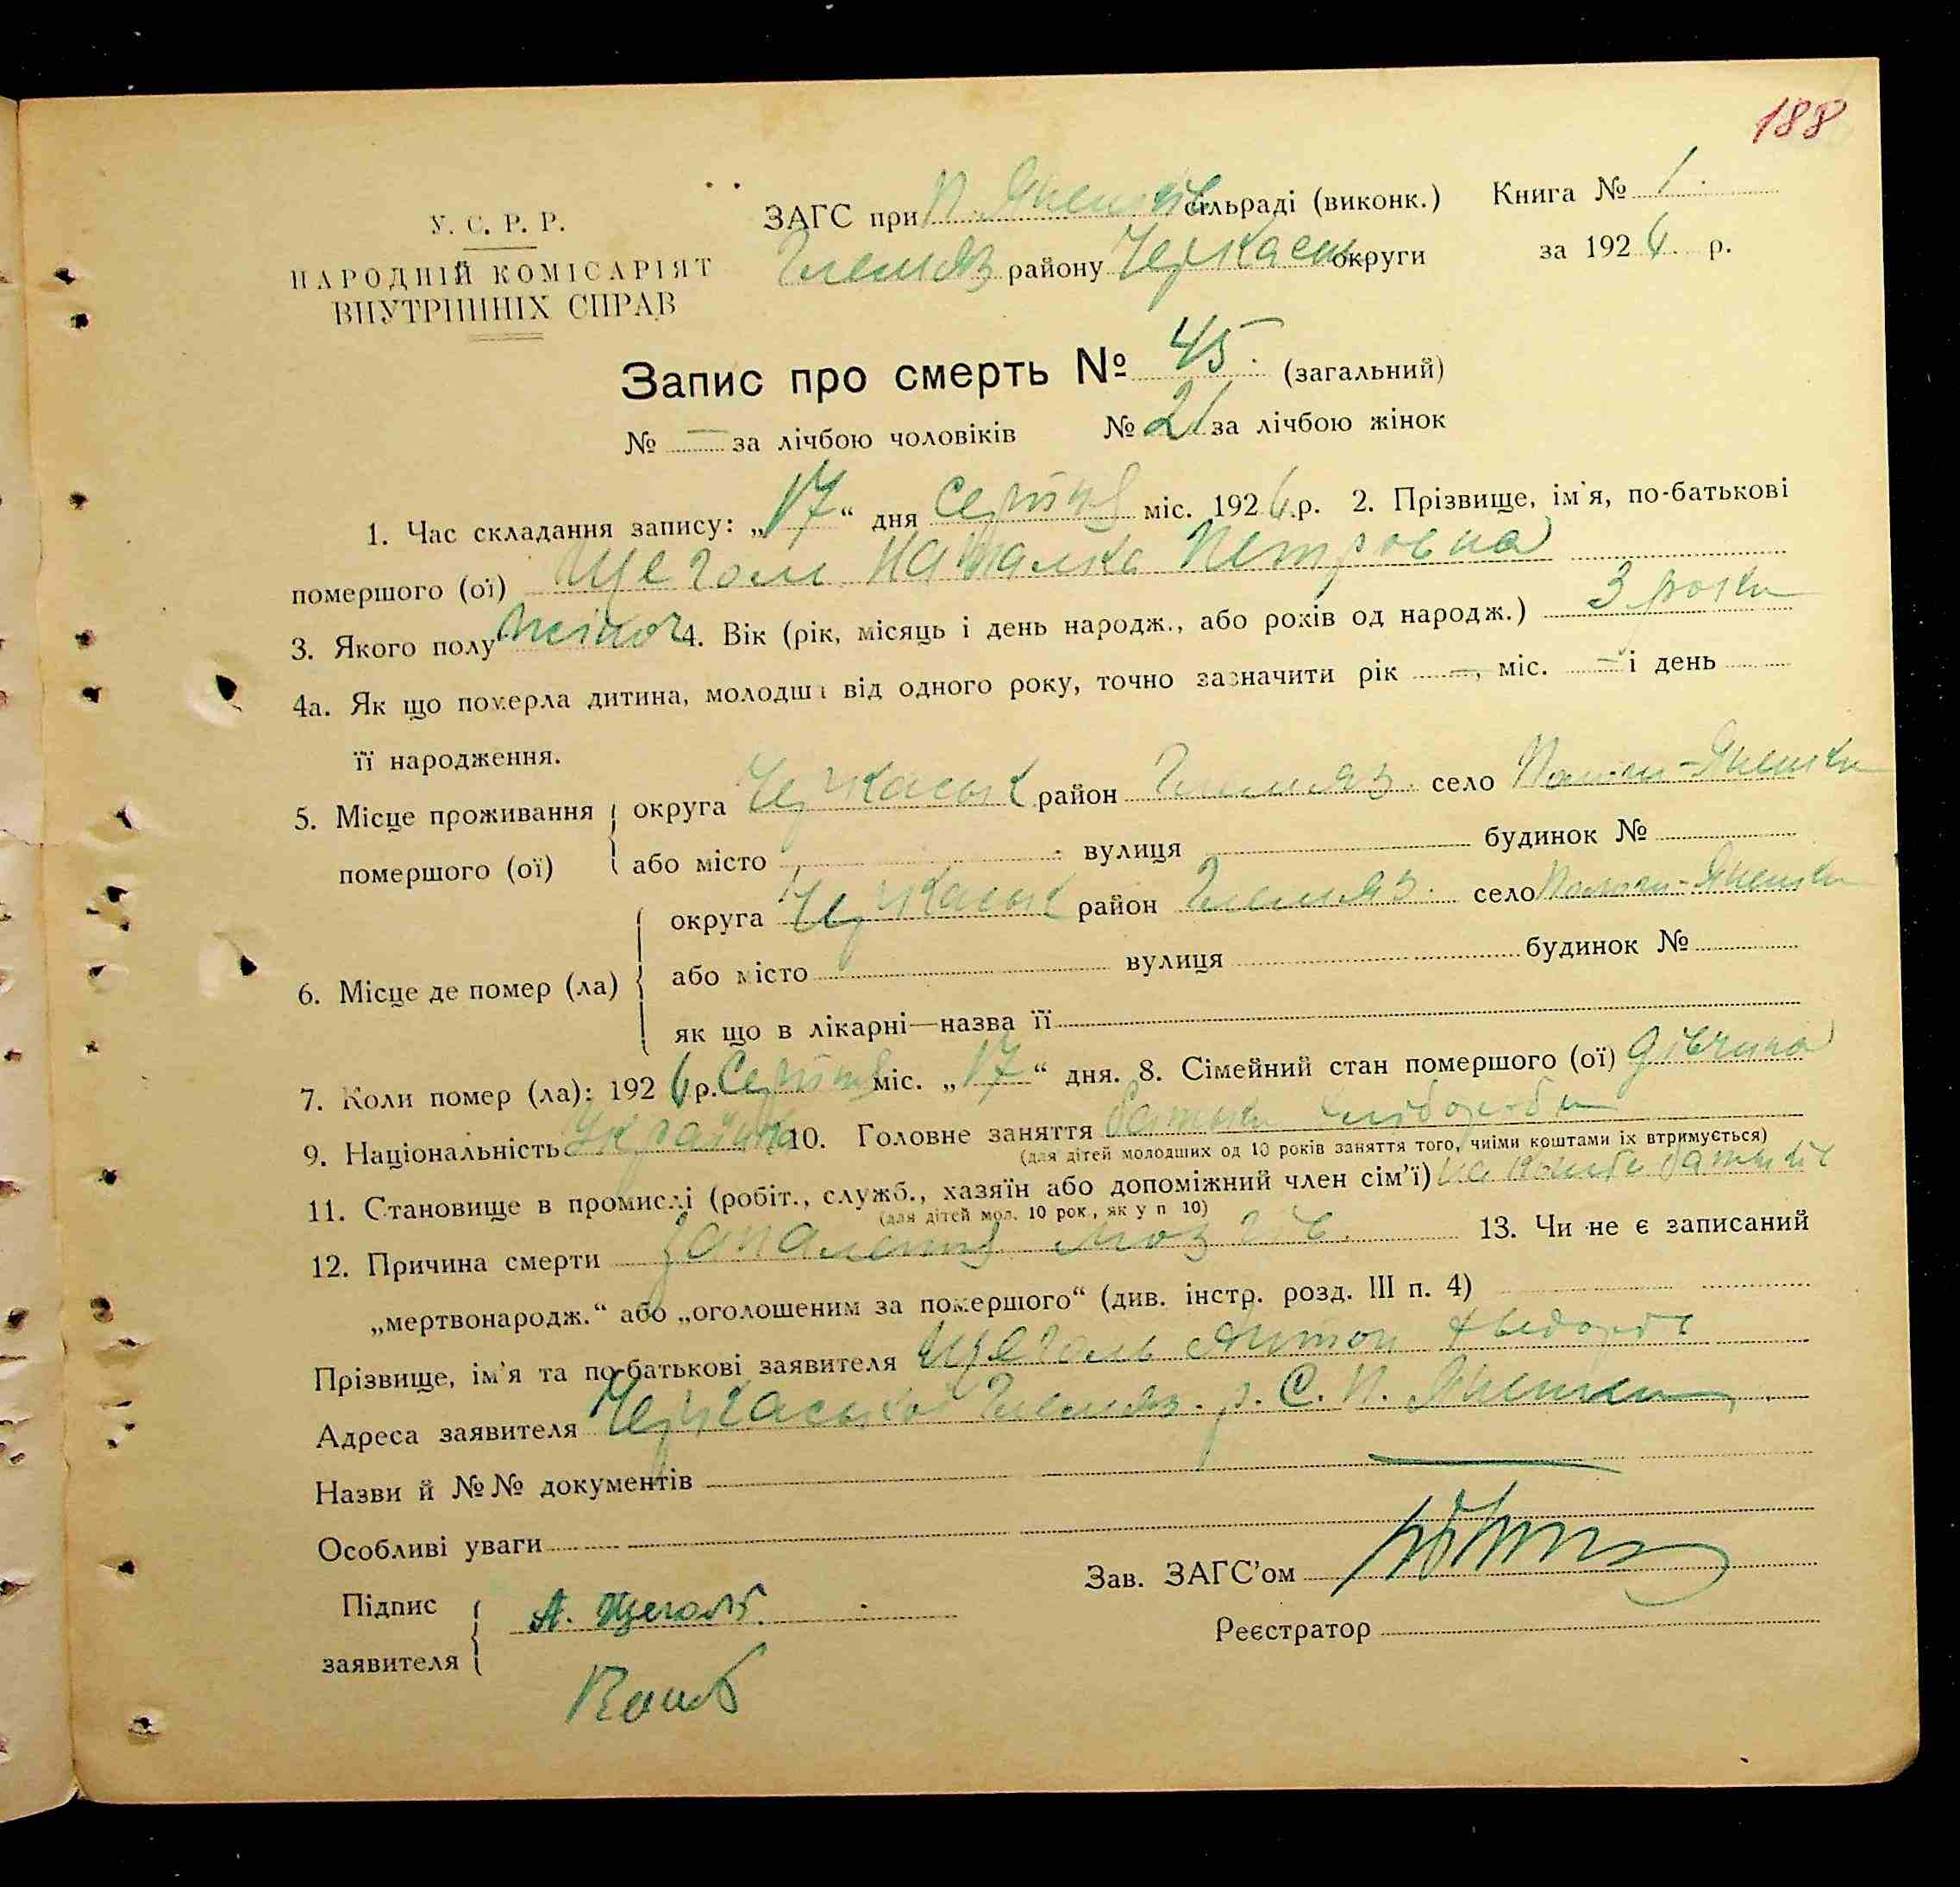 188
У. С. Р. Р.
НАРОДНІЙ КОМІСАРІЯТ
ВНУТРІШНІХ СПРАВ
ЗАГС при П. Яненків сільраді (виконк.) Книга № 1.
Гельмяз району Черкаськ округи за 1926 р.
Запис про смерть № 45. (загальний)
№ — за лічбою чоловіків № 21 за лічбою жінок
1. Час складання запису: „17“ дня Серпня міс. 1926 р. 2. Прізвище, ім'я, по-батькові
помершого (ої) Щеголь Наталка Петровна
3. Якого полу жіноч 4. Вік (рік, місяць і день народж., або років од народж.) 3 роки
4а. Як що померла дитина, молодша від одного року, точно зазначити рік —, міс. — і день
її народження.
5. Місце проживання округа Черкаськ район Гельмяз. село
помершого (ої) або місто вулиця будинок №
округа Черкаськ район Гельмяз. село
6. Місце де помер (ла) або місто вулиця будинок №
як що в лікарні—назва її
7. Коли помер (ла): 1926 р. Серпня міс. „17“ дня. 8. Сімейний стан помершого (ої) дівчина
9. Національність Україн. 10. Головне заняття батьки хлібороби
(для дітей молодших од 10 років заняття того, чиїми коштами їх втримується)
11. Становище в промислі (робіт., служб., хазяїн або допоміжний член сім’ї) на кошти батьків
(для дітей мол. 10 рок., як у п 10)
12. Причина смерти запалення мозгів. 13. Чи не є записаний
„мертвонародж.“ або „оголошеним за помершого“ (див. інстр. розд. III п. 4)
Прізвище, ім'я та по-батькові заявителя Щеголь Антон
Адреса заявителя Черкаської Гельмяз. р. С. П. Яненки
Назви й №№ документів
Особливі уваги
Зав. ЗАГС’ом
Підпис
заявителя А. Щеголь
Реєстратор